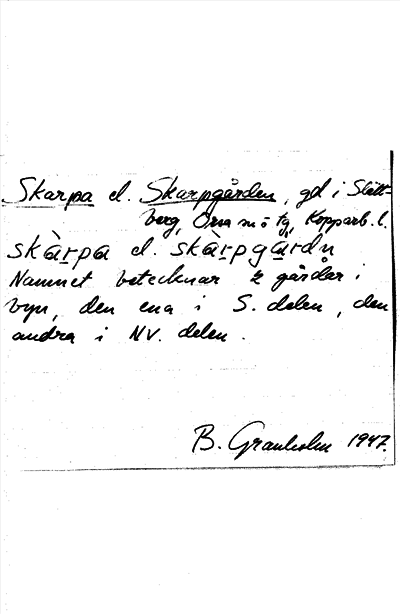 Skarpa el. Skarpgården, gd i Slätt-
berg, Orsa sn o tg, Kopparb. l.
skàrpa el. skàrpgårdn
Namnet betecknar 2 gårdar i
byn, den ena i S. delen, den
andra i NV. delen.
B. Granholm 1947.